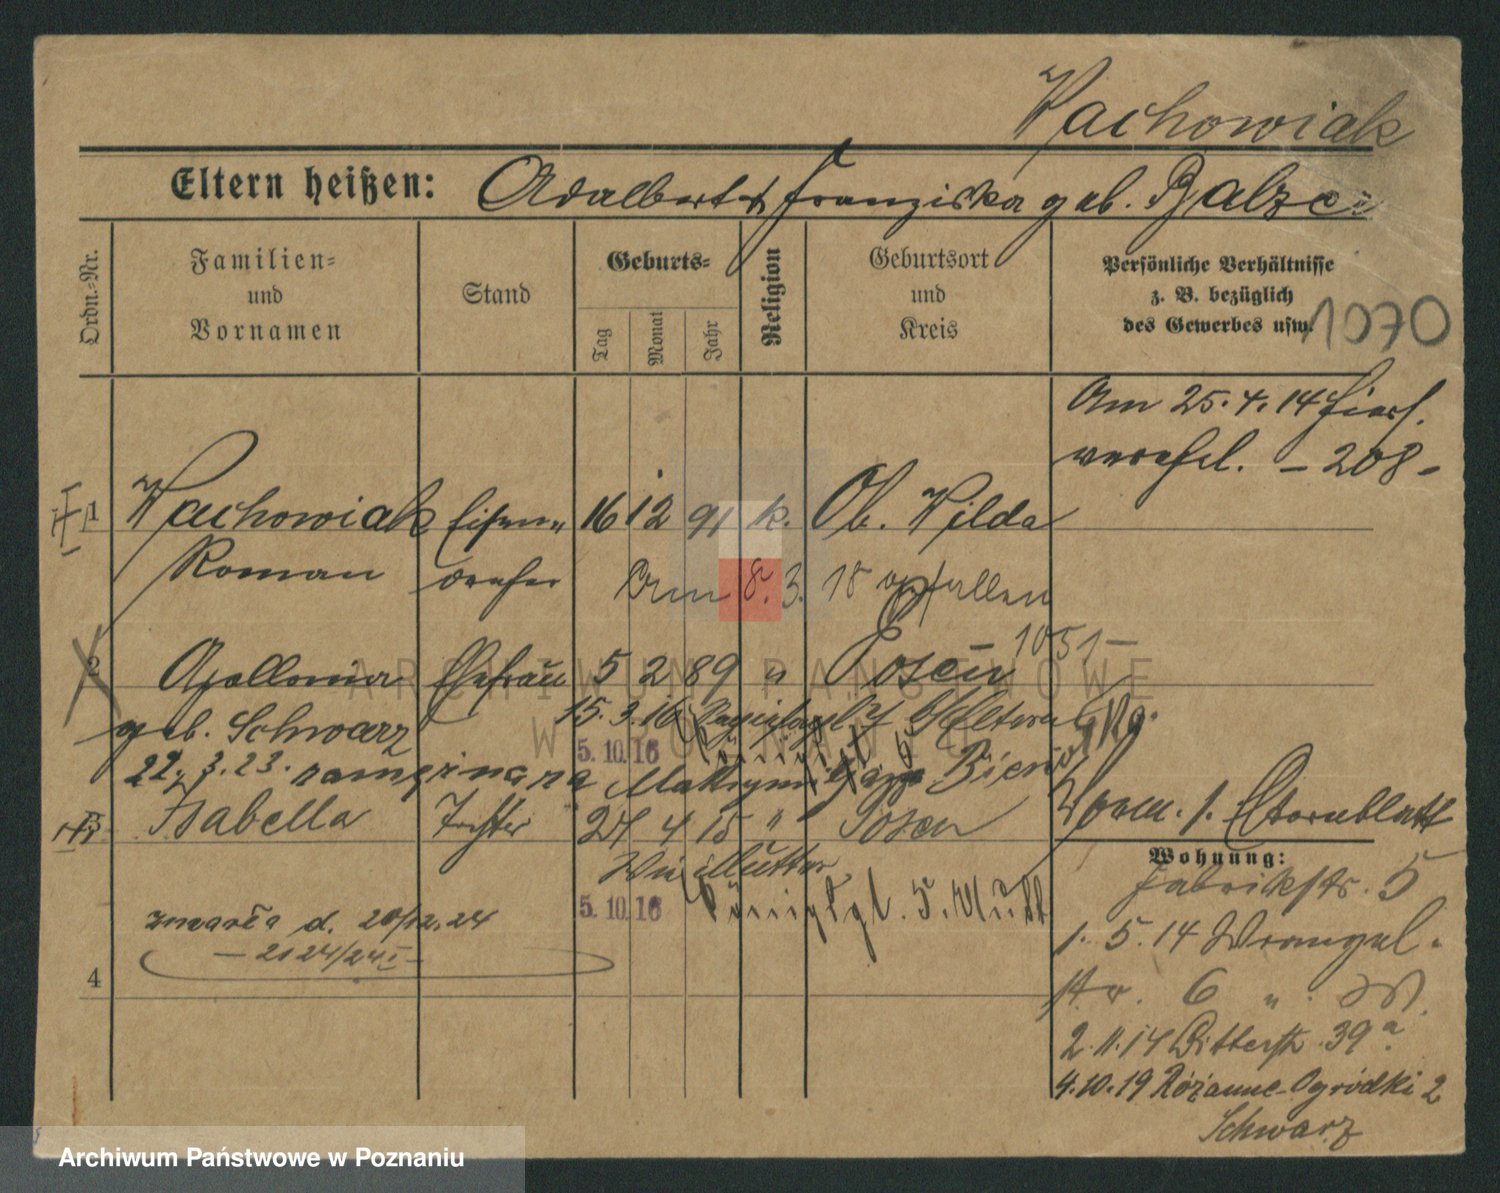 Wachowiak
Eltern heißen: Adalbert & Franziska geb. Balzer
Ordn.-Nr.
Familien-
und
Vornamen
Stand
Geburts-
Tag
Monat
Jahr
Religion
Geburtsort
und
Kreis
Persönliche Verhältnisse
z. B. bezüglich
des Gewerbes usw.
1070
Am 25.4.14 hiers.
verehel. - 208 -
1 Wachowiak Eisen- 16 12 91 k. Ob. Wilda
Roman dreher Am 8.3. 18 gefallen
1051-
2 Apollonia Ehefrau 5 2 89 " Posen
geb. Schwarz 15.3.16 Eltern
5.10.16
22. 3. 23.
3 Isabella Tochter 24 4 15 " Posen
Wie Mutter
5.10.16
zmarła d. 20/12.24
- 2124/24 I -
4
Vorm. s. Elternblatt
Wohnung:
Fabrikstr. 5
1. 5. 14 Wrangel-
str. 6 "
2.11.14 Bitterstr. 39a
4.10.19 Różanne-Ogródki 2
Schwarz
ARCHIWUM PAŃSTWOWE
W POZNANIU
Archiwum Państwowe w Poznaniu